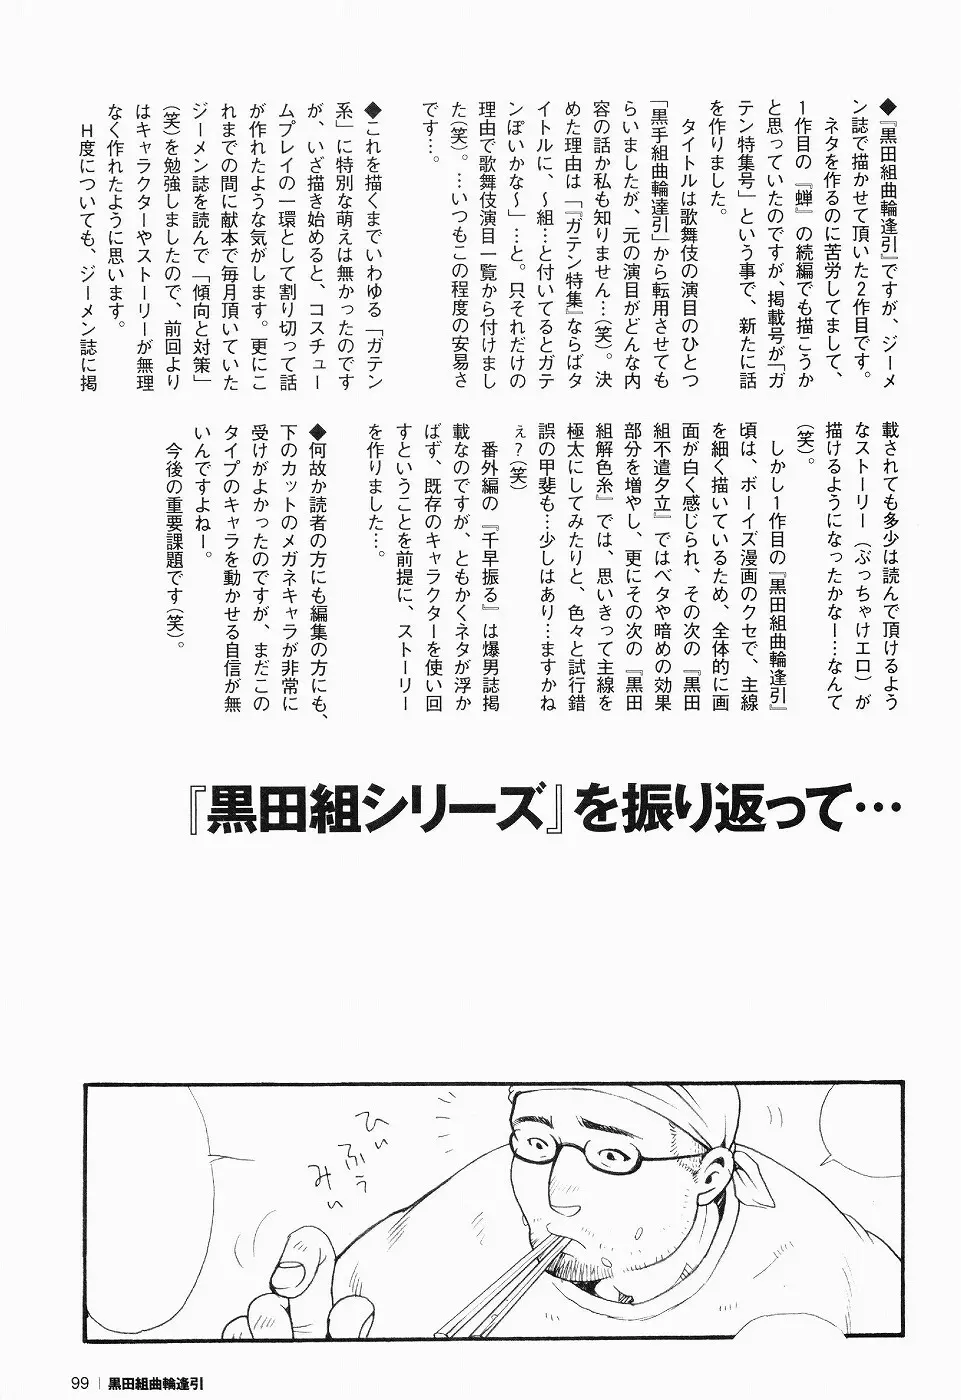 ◆『黒田組曲輪逢引』ですが、ジーメ
ン誌で描かせて頂いた2作目です。
ネタを作るのに苦労してまして、
1作目の『蝉』の続編でも描こうか
と思っていたのですが、掲載号が「ガ
テン特集号」という事で、新たに話
を作りました。
タイトルは歌舞伎の演目のひとつ
「黒手組曲輪達引」から転用させても
らいましたが、元の演目がどんな内
容の話か私も知りません…(笑)。決
めた理由は「『ガテン特集』ならばタ
イトルに、〜組…と付いてるとガテ
ンぽいかな〜」…と。只それだけの
理由で歌舞伎演目一覧から付けまし
た(笑)。…いつもこの程度の安易さ
です…。
◆これを描くまでいわゆる「ガテン
系」に特別な萌えは無かったのです
が、いざ描き始めると、コスチュー
ムプレイの一環として割り切って話
が作れたような気がします。更にこ
れまでの間に献本で毎月頂いていた
ジーメン誌を読んで「傾向と対策」
(笑)を勉強しましたので、前回より
はキャラクターやストーリーが無理
なく作れたように思います。
H度についても、ジーメン誌に掲
載されても多少は読んで頂けるよう
なストーリー（ぶっちゃけエロ）が
描けるようになったかなー…なんて
(笑)。
しかし1作目の『黒田組曲輪逢引』
頃は、ボーイズ漫画のクセで、主線
を細く描いているため、全体的に画
面が白く感じられ、その次の『黒田
組不遣夕立』ではベタや暗めの効果
部分を増やし、更にその次の『黒田
組解色糸』では、思いきって主線を
極太にしてみたりと、色々と試行錯
誤の甲斐も…少しはあり…ますかね
ぇ?(笑)
番外編の『千早振る』は爆男誌掲
載なのですが、ともかくネタが浮か
ばず、既存のキャラクターを使い回
すということを前提に、ストーリー
を作りました…。
◆何故か読者の方にも編集の方にも、
下のカットのメガネキャラが非常に
受けがよかったのですが、まだこの
タイプのキャラを動かせる自信が無
いんですよねー。
今後の重要課題です(笑)。
『黒田組シリーズ』を振り返って…
ひぃ
ふぅ
みぃ
99 | 黒田組曲輪逢引